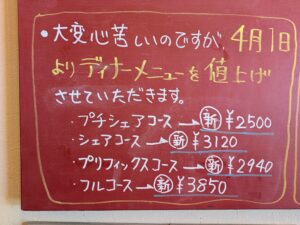 ・大変心苦しいのですが、4月1日
よりディナーメニューを値上げ
させていただきます。
・プチシェアコース→新¥2500
・シェアコース→新¥3120
・プリフィックスコース→新¥2940
・フルコース→新¥3850